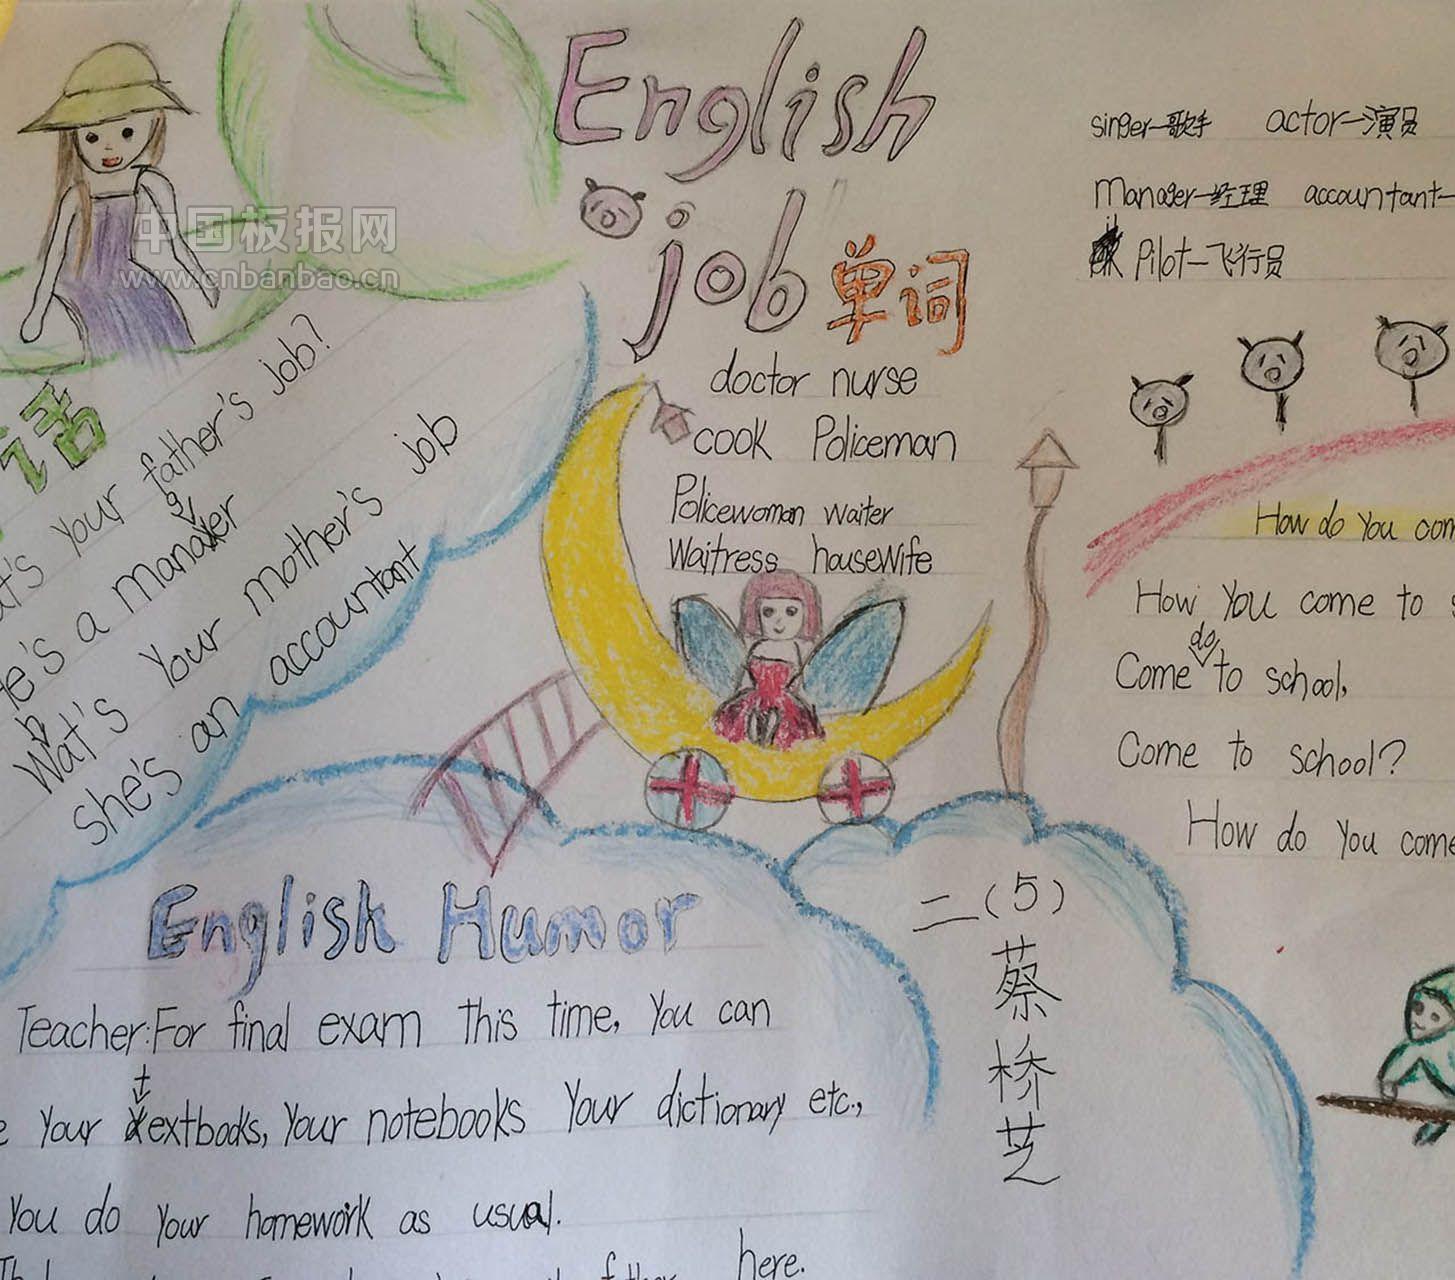 English
job 单词
doctor nurse
cook Policeman
Policewoman waiter
Waitress housewife
singer—歌手 actor—演员
Manager—经理 accountant—
Pilot—飞行员
中国板报网
www.cnbanbao.cn
话
your father's job?
He's a manager
What's your mother's job
She's an accountant
How do you com
How you come to s
Come do to school,
Come to school?
How do you come
English Humor
Teacher: For final exam this time, you can
e your textbooks, your notebooks your dictionary etc.,
You do your homework as usual.
here.
二(5)
蔡桥芝